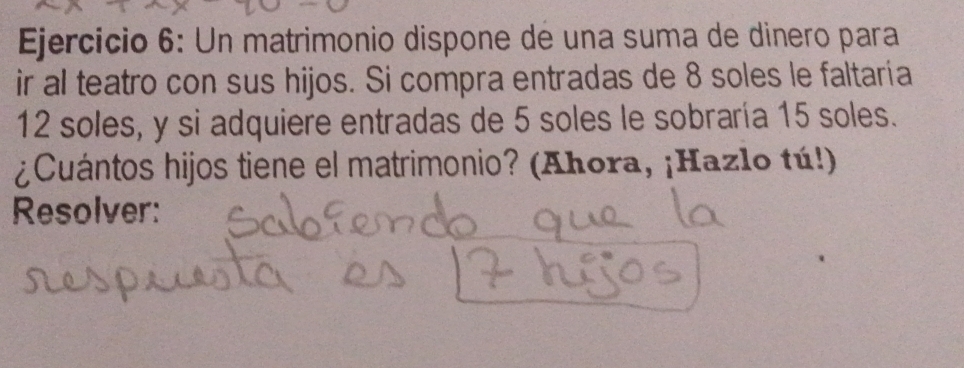 Ejercicio 6: Un matrimonio dispone de una suma de dinero para
ir al teatro con sus hijos. Si compra entradas de 8 soles le faltaría
12 soles, y si adquiere entradas de 5 soles le sobraría 15 soles.
¿Cuántos hijos tiene el matrimonio? (Ahora, ¡Hazlo tú!)
Resolver: Sabiendo que la
respuesta es 7 hijos